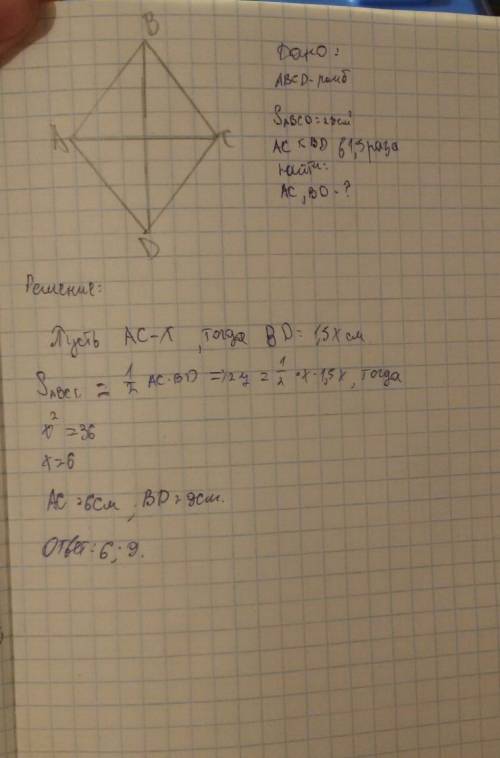 B
A
C
D
Дано:
ABCD - ромб
SABCD = см²
AC < BD в 1,5 раза
Найти:
AC, BD - ?
Решение:
Пусть AC - x, тогда BD = 1,5x см
= 1/2 AC · BD => 27 = 1/2 · x · 1,5x, тогда
x² = 36
x = 6
AC = 6 см, BD = 9 см.
Ответ: 6; 9.